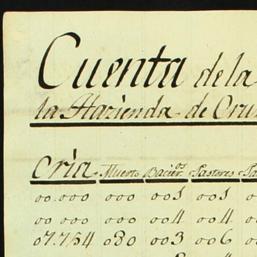 Cuenta de la
la Hazienda de Cru
Cria Muerto Bacier.os Pastores
00.000 000 001 001
00.000 000 004 004
07.754 080 003 006